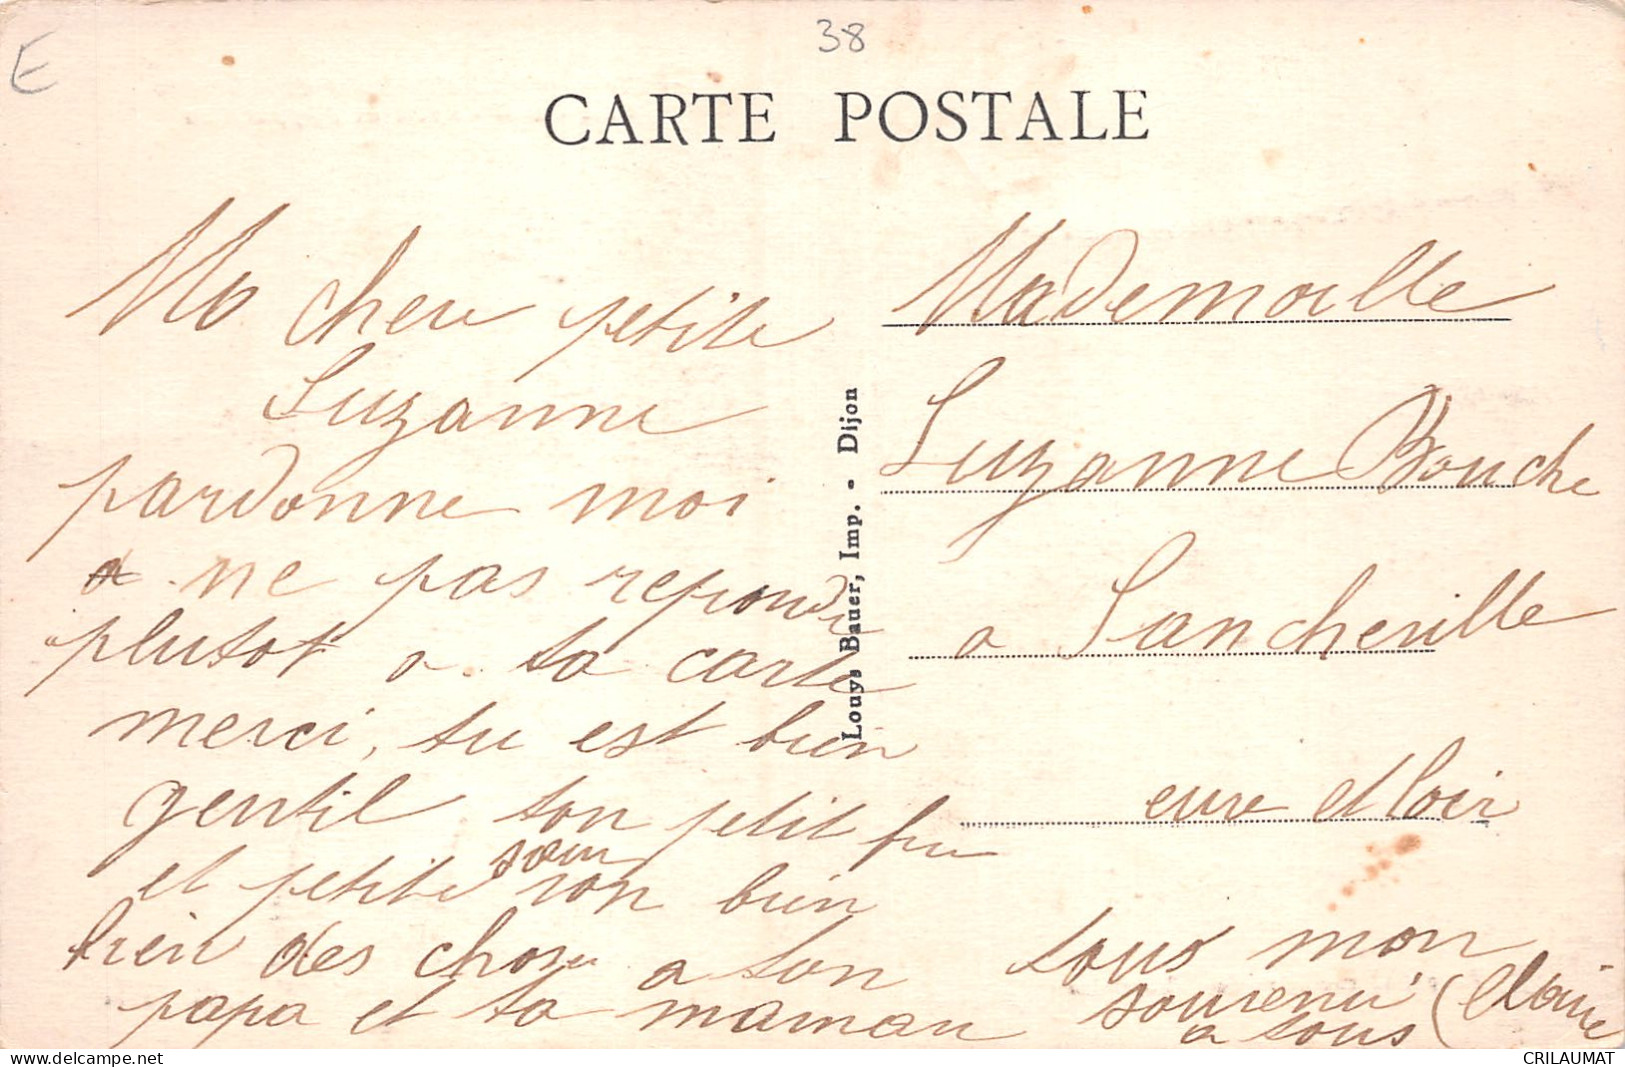 E
38
CARTE POSTALE
Ma chere petite
Suzanne
pardonne moi
a ne pas repondre
plutot a ta carte
merci, tu est bien
gentil ton petit fre
et petite soeur son bien
bien des chose a ton
papa et ta maman
tous mon
souvenir
a tous
Louys Bauer, Imp. - Dijon
Mademoille
Suzanne Bouche
a Sancheville
eure et loir
delcampe.net
CRILAUMAT